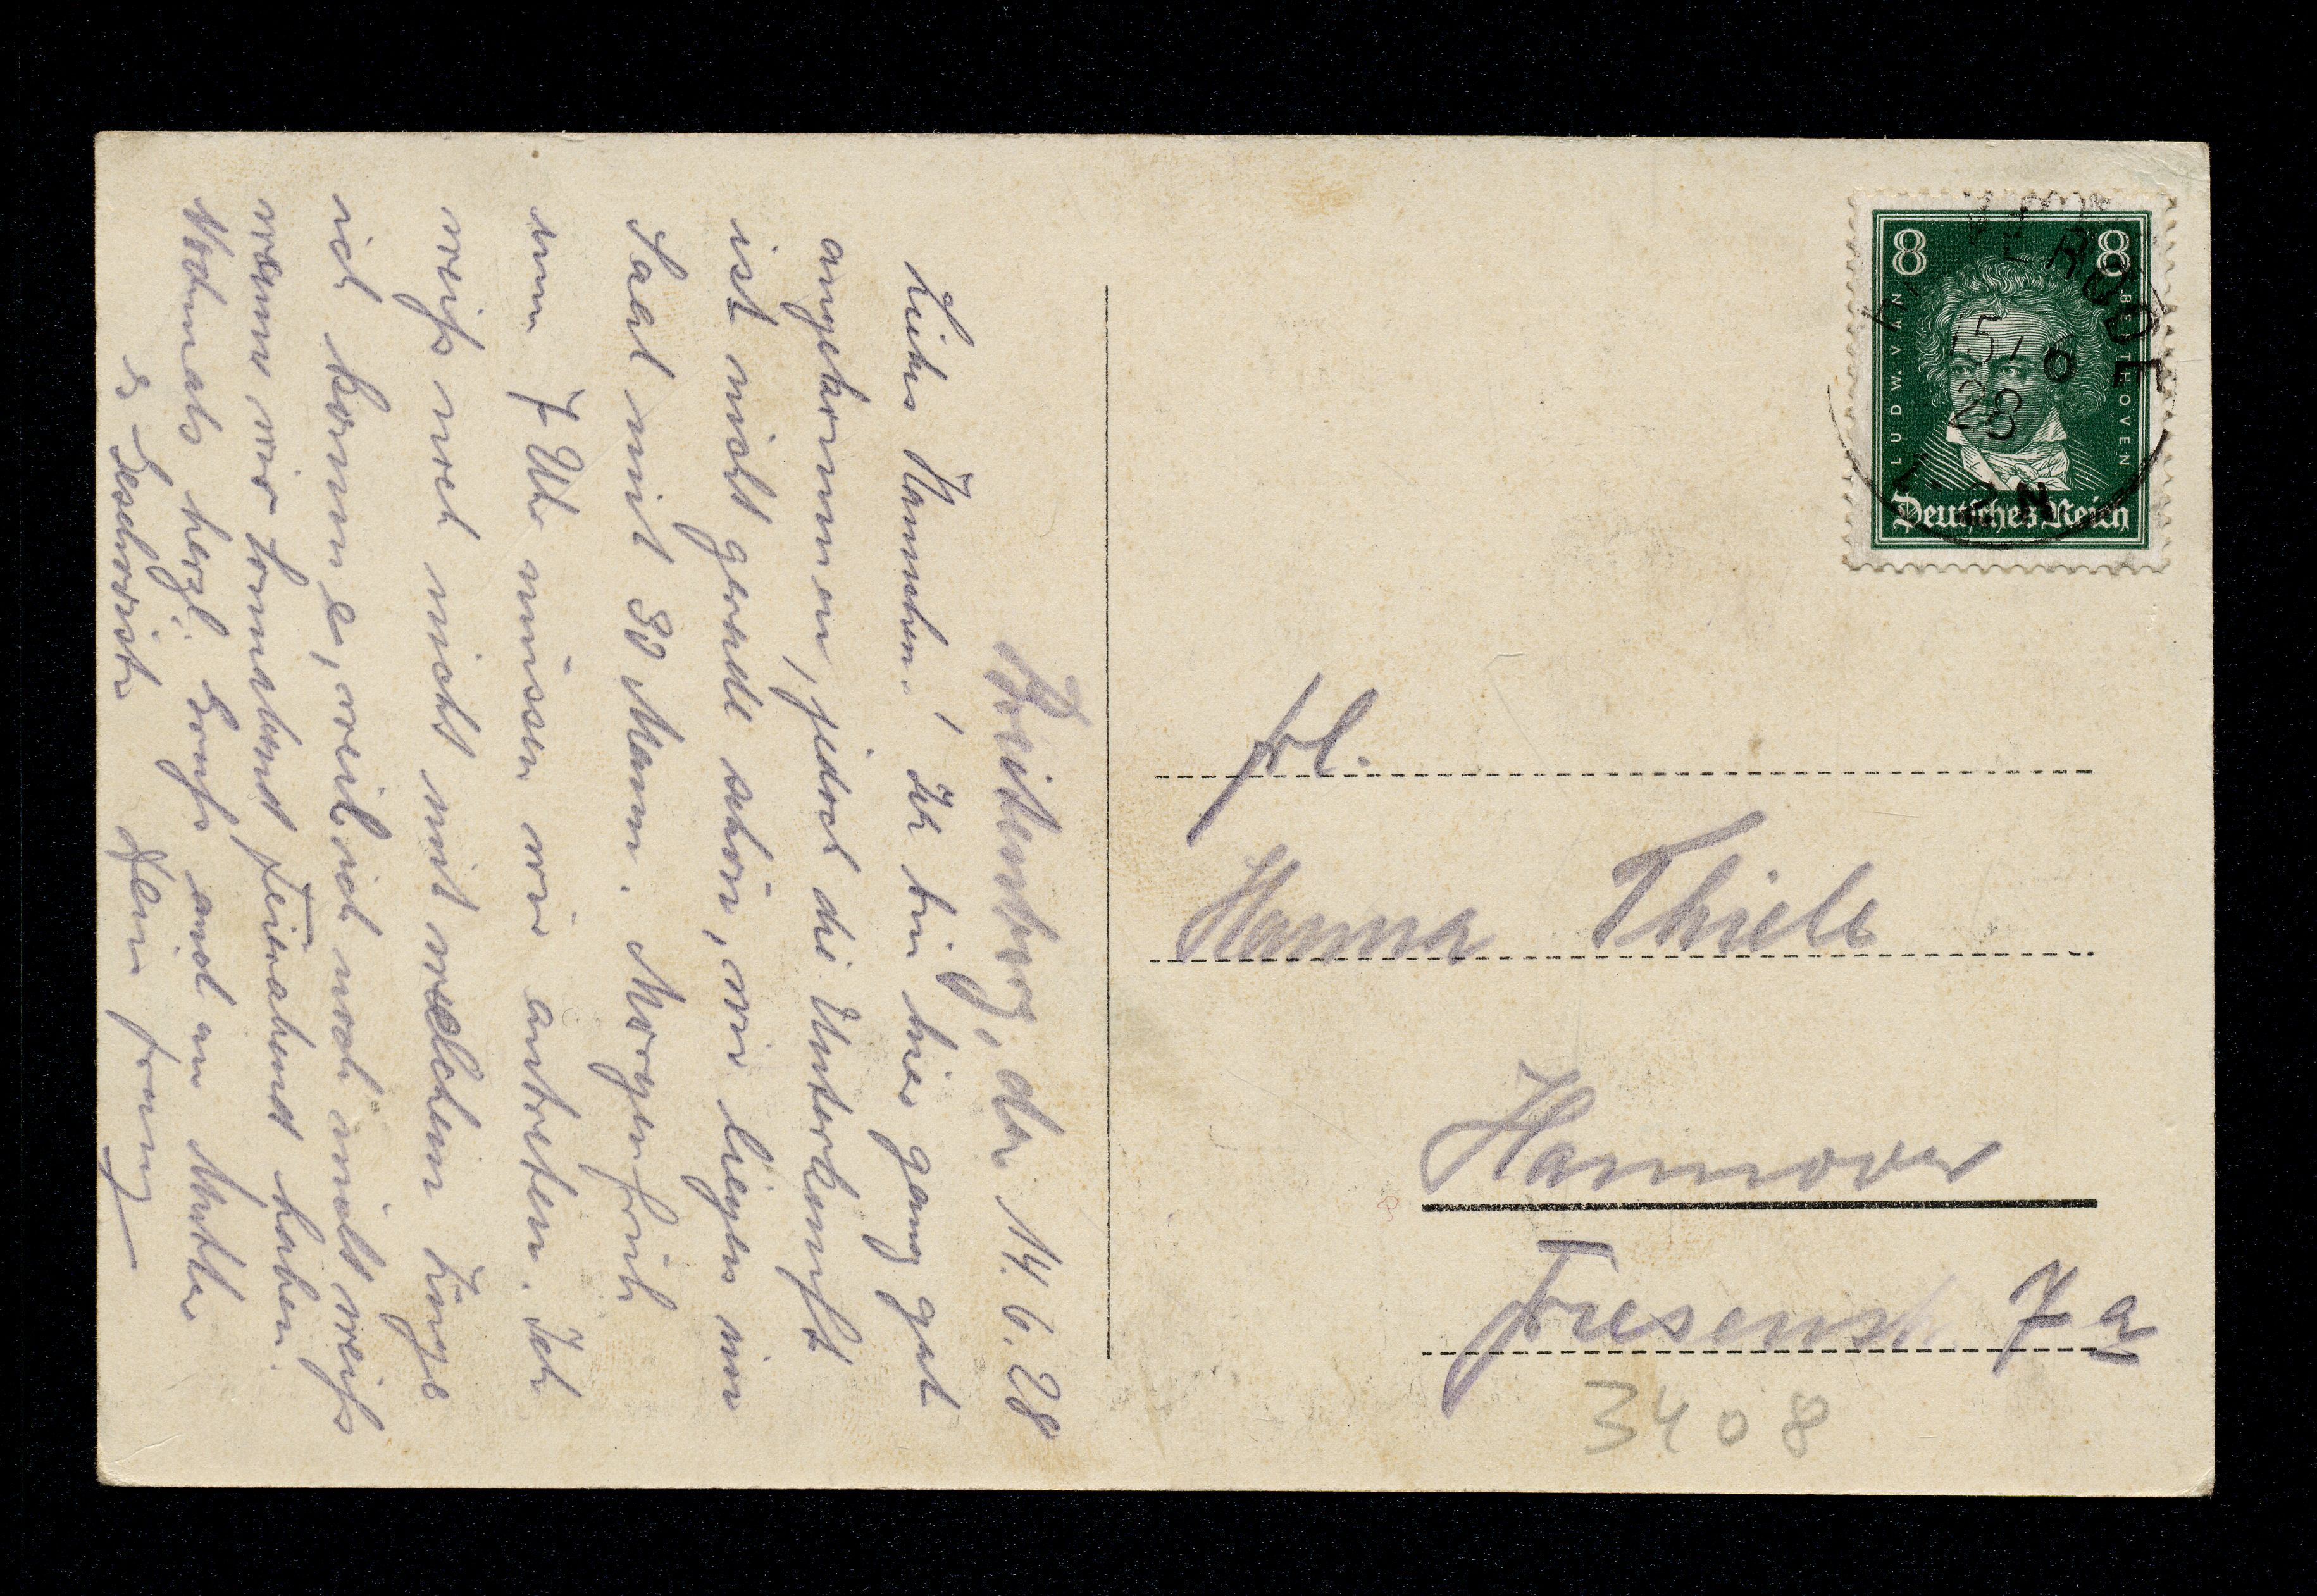 Breitenberg, der 14. 6. 28
Liebes Hannchen! Ich bin hier ganz gut
angekommen, jedoch die Unterkunft
ist nicht gerade schön, wir liegen im
Saal mit 30 Mann. Morgen früh
um 7 Uhr müssen wir antreten. Ich
weiß noch nicht mit welchem Zuge
ich komme, weil ich noch nicht weiß
wann wir Sonnabend Feierabend haben.
Nochmals herzl. Gruß auch an Mutter
u Geschwister Dein Franz
8 8
LUDW. VAN BEETHOVEN
Deutsches Reich
15. 6
28
Frl.
Hanna Thiele
Hannover
Friesenstr 7a
3408